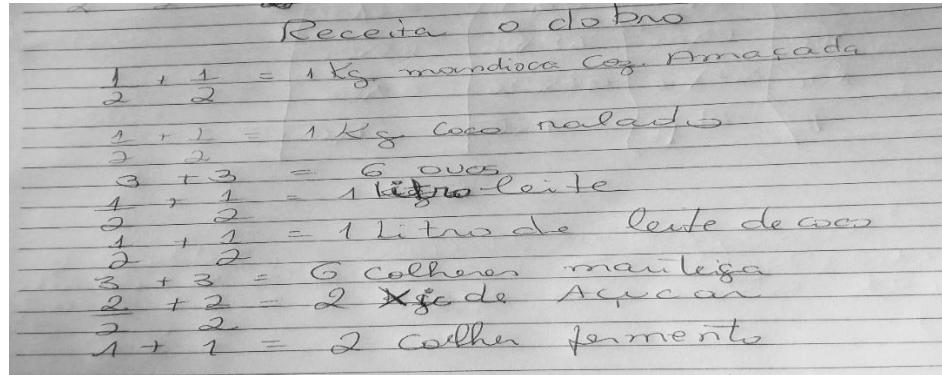 Receita o dobro
1/2 + 1/2 = 1 Kg mandioca Coz. Amaçada
1/2 + 1/2 = 1 Kg Coco ralado
3 + 3 = 6 ovos
1/2 + 1/2 = 1 litro leite
1/2 + 1/2 = 1 Litro de leite de coco
3 + 3 = 6 colheres manteiga
2/2 + 2/2 = 2 Xic de Açucar
1 + 1 = 2 colher fermento